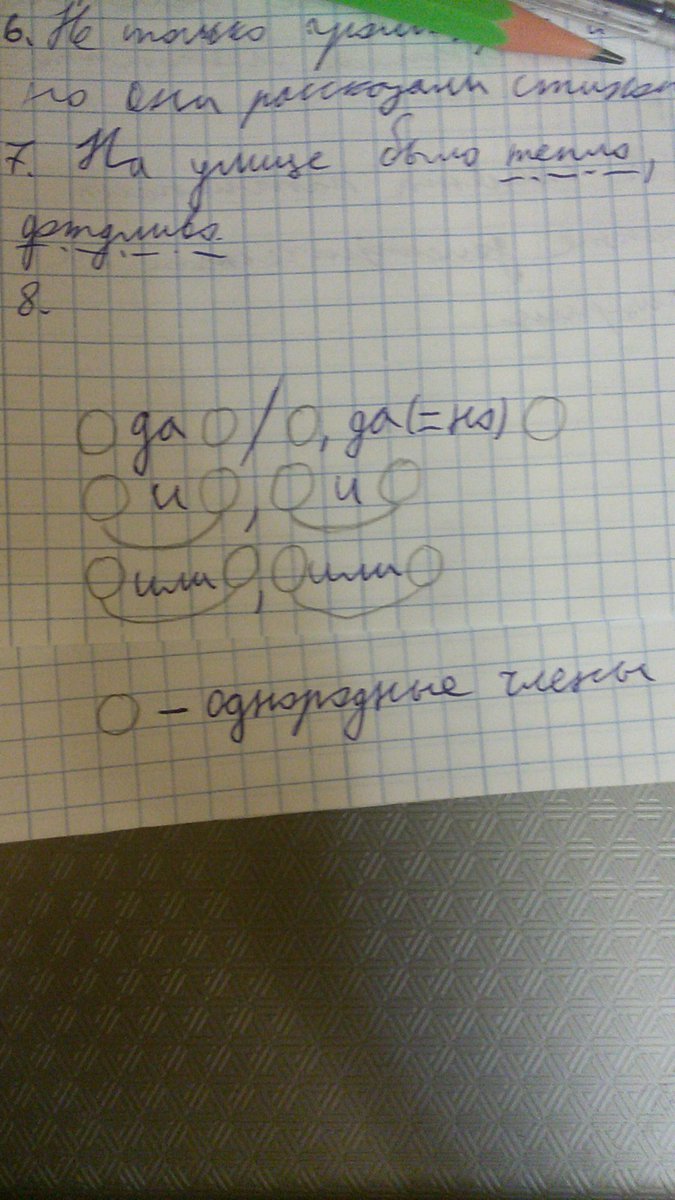 6. Не только
но они рассказали
7. На улице было тепло,
дождливо.
8
О да О / О, да (= но) О
О и О, О и О
О или О, О или О
О – однородные члены